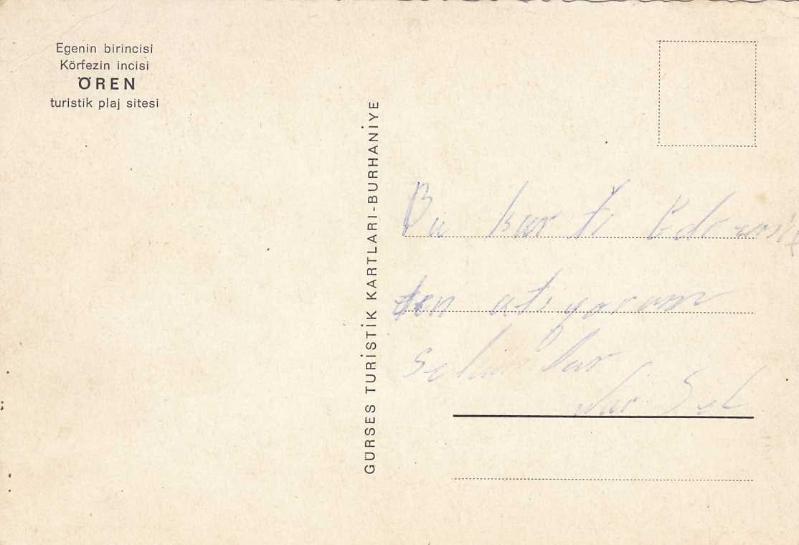 Egenin birincisi
Körfezin incisi
ÖREN
turistik plaj sitesi
GÜRSES TURİSTİK KARTLARI-BURHANİYE
Bu kartı Edremit
ten atıyorum